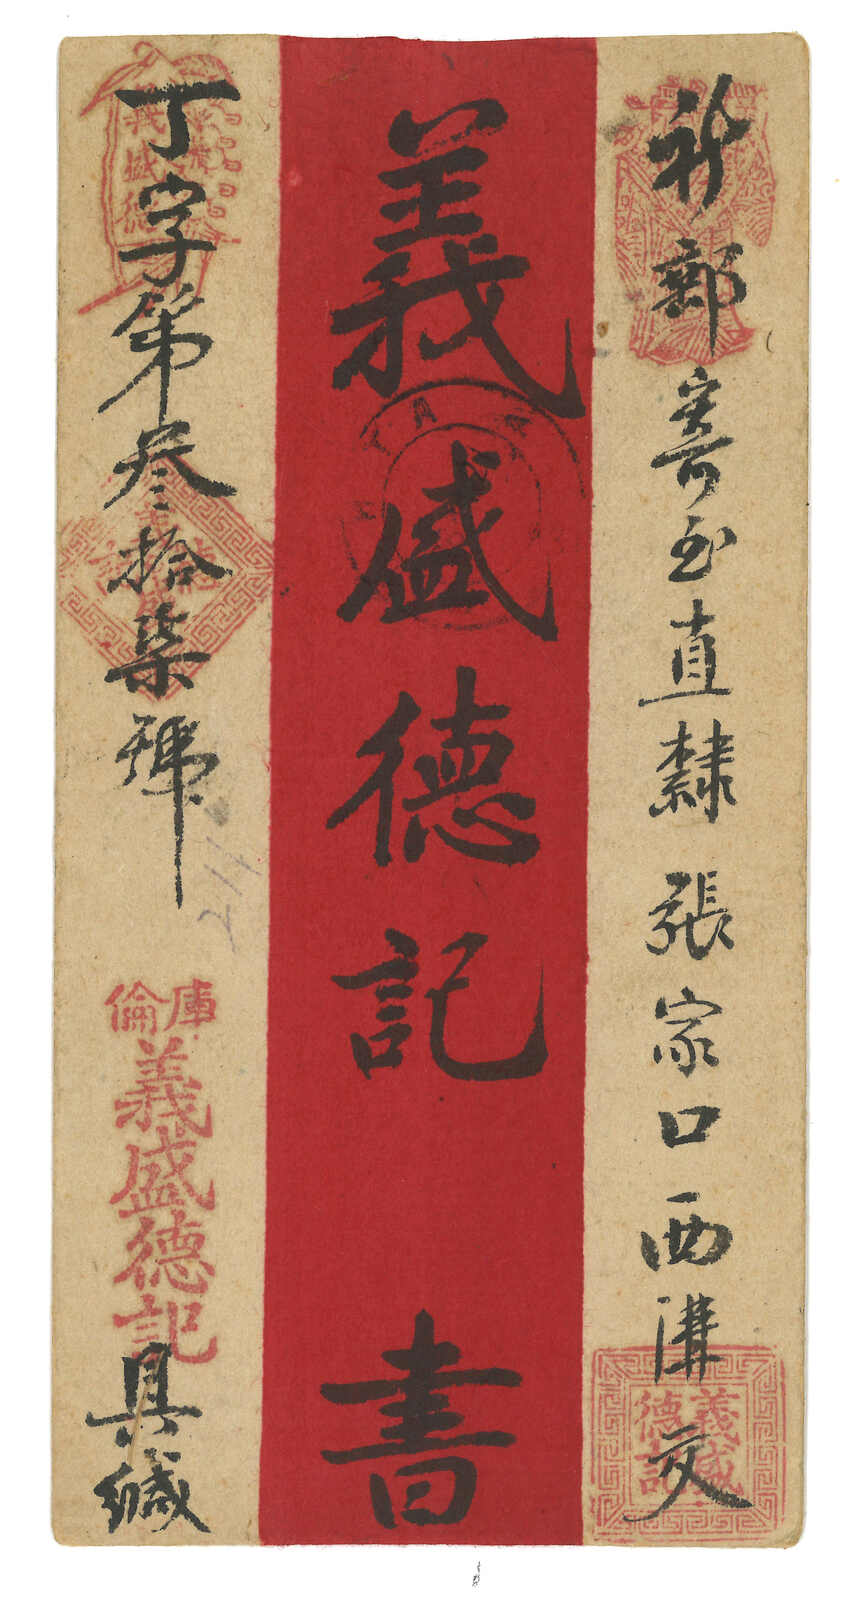 新郵寄至直隸張家口西溝交
義盛德記
義盛德記
書
丁字第叁拾柒號
庫倫
義盛德記
具緘